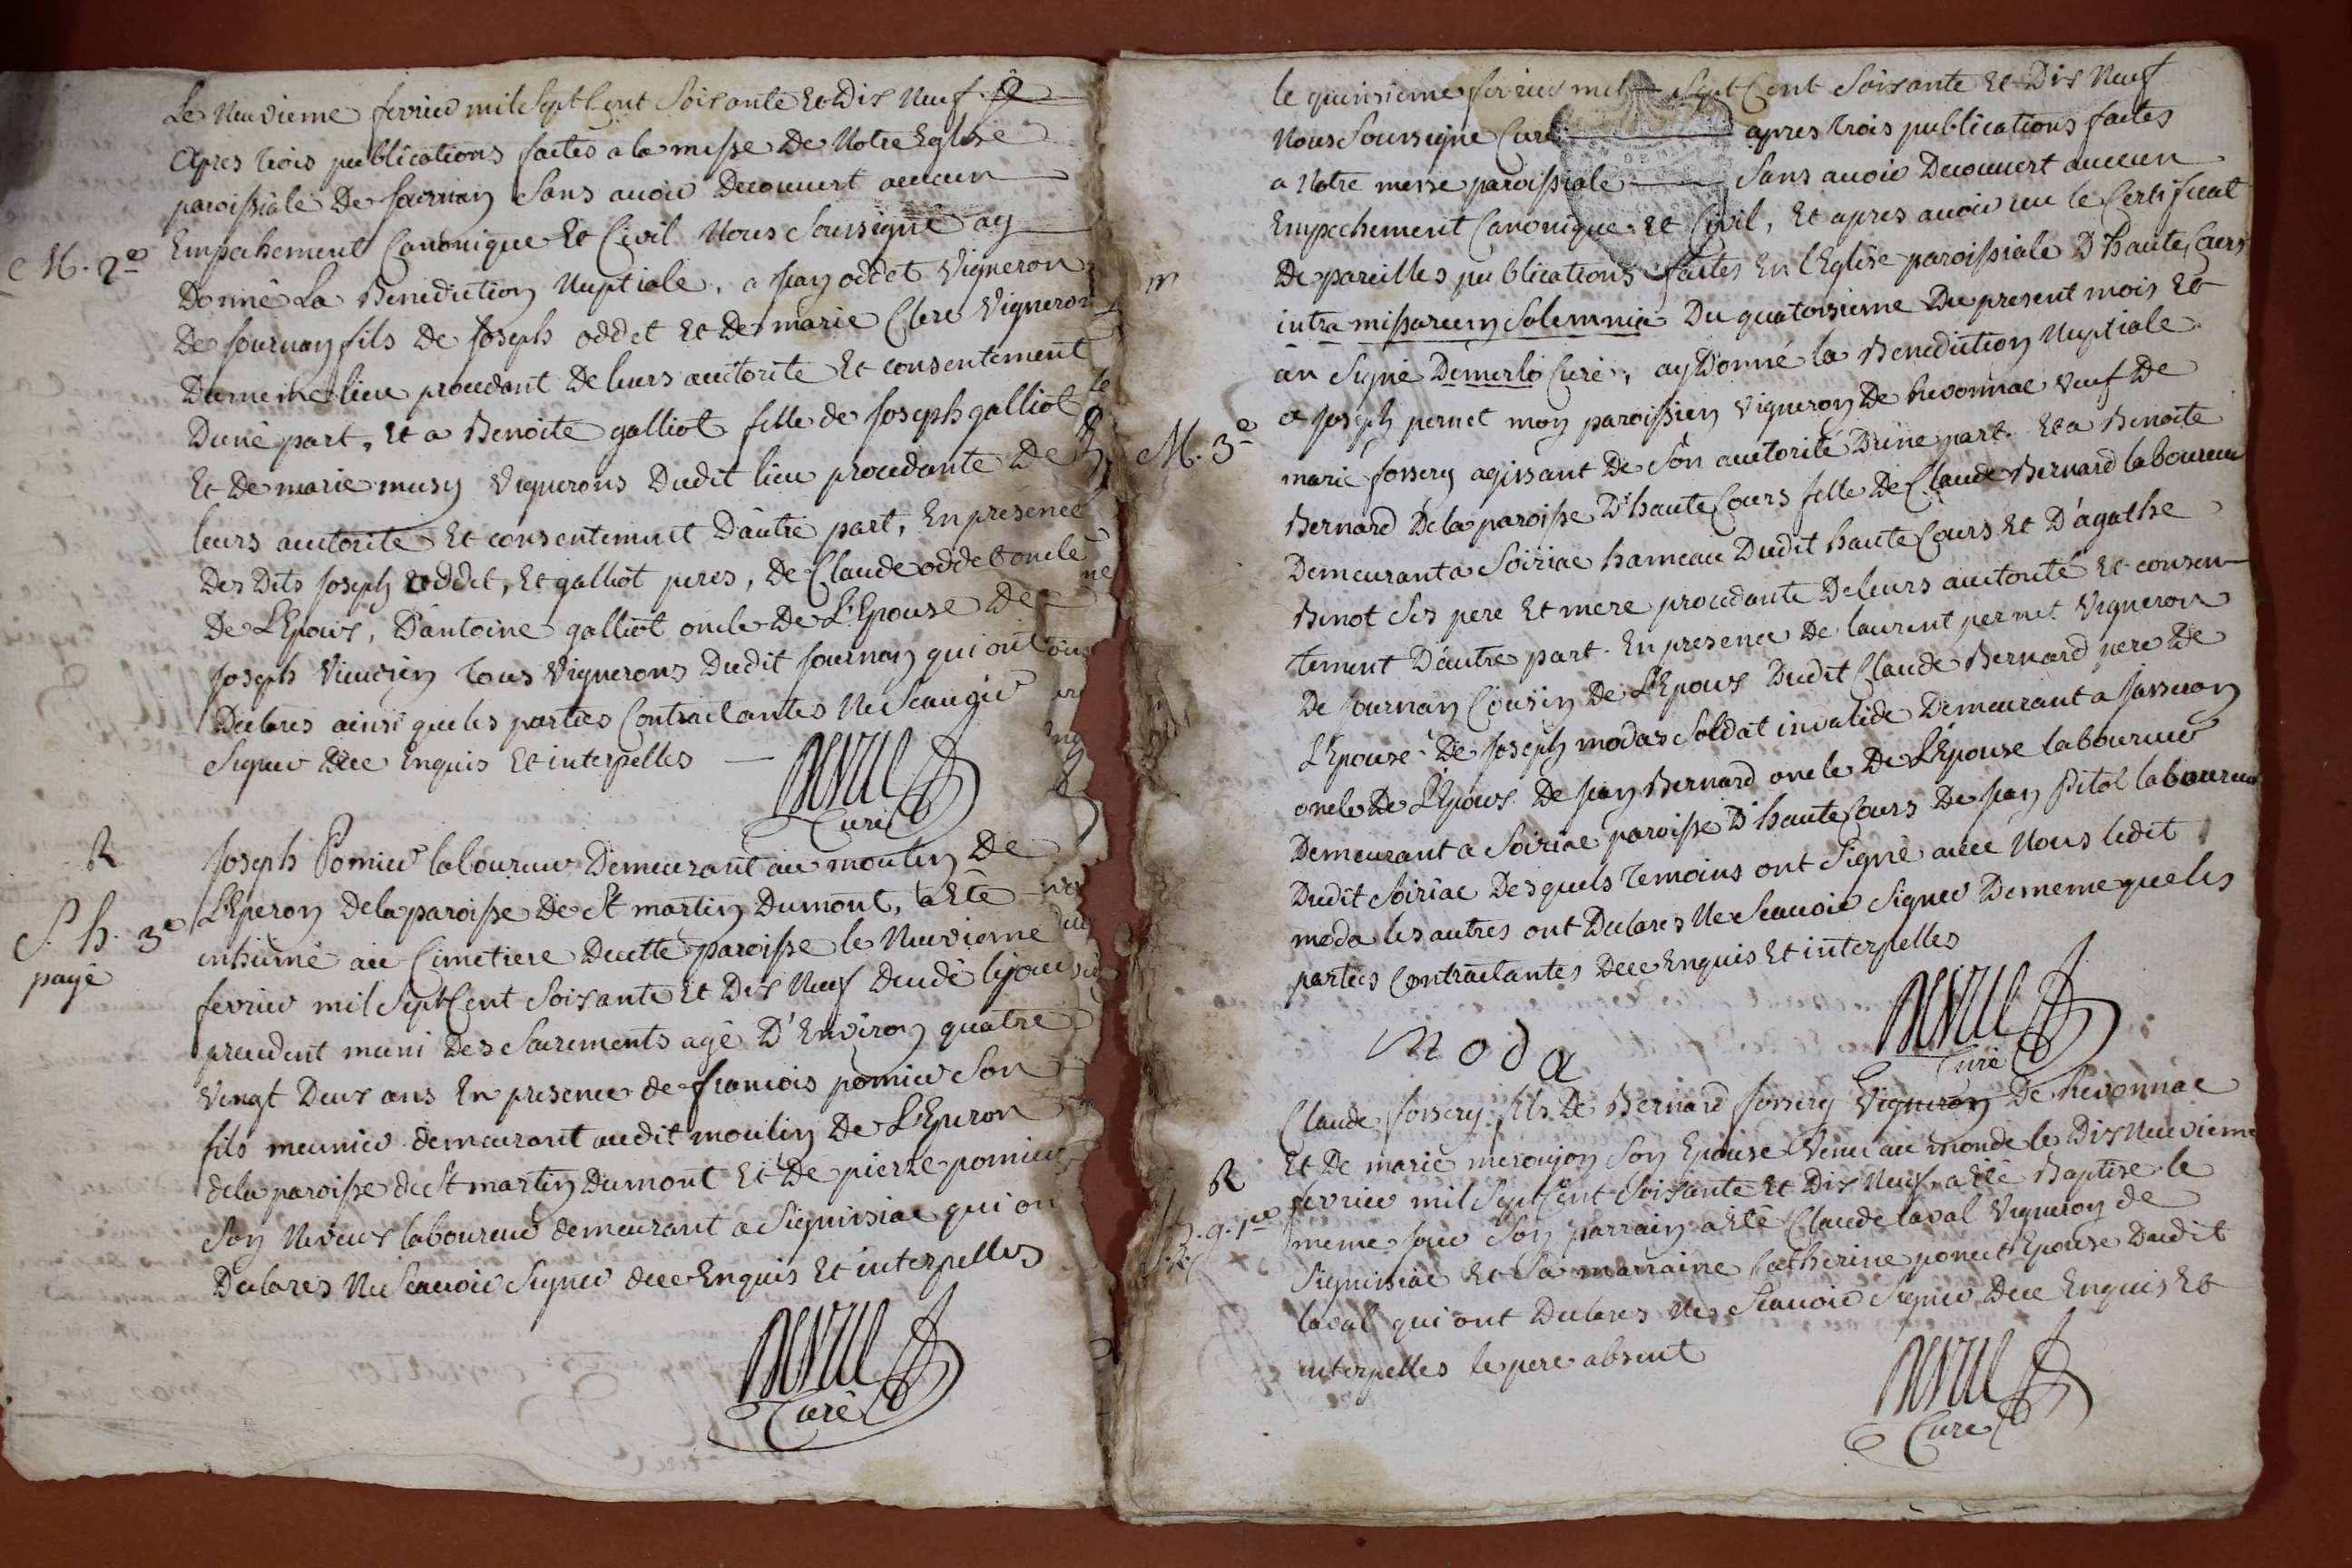 Le Neuvieme fevrier mil Sept Cent Soixante Et Dix Neuf
Apres trois publications faites a la messe De Notre Eglise
paroissiale De Journan Sans avoir Decouvert aucun
Empechement Canonique Et Civil Nous Soussigné ay
M. 2e
Donné La Benediction Nuptiale, a jean oddet Vigneron
De Journan fils De Joseph oddet Et De marie Clere Vignerons
Du meme lieu procedant De leurs auctorite Et consentement
D'une part, Et a Benoite galliot fille de Joseph galliot
Et De marie musy Vignerons Dudit lieu procedante De
leurs auctorite Et consentement D'autre part, En presence
Des Dits Joseph oddet, Et galliot peres, De Claude oddet oncle
De L'Epoux, D'antoine galliot oncle De L'Epouse De
Joseph Vieudrin tous Vignerons Dudit Journan qui ont
Declarés ainsi que les parties Contractantes Ne Scavoir
Signer Dece Enquis Et interpelles
Curé
R
Joseph Pomier laboureur Demeurant au moulin De
L'Eperon De la paroisse De St martin Dumont, a Eté
S. h. 3e
payé
inhumé au Cimetiere De cette paroisse le Neuvieme
fevrier mil Sept Cent Soixante Et Dix Neuf decedé le jour
precedent muni Des Sacrements agé D'Environ quatre
Vingt Deux ans En presence de francois pomier Son
fils meunier demeurant audit moulin De L'Eperon
de la paroisse de St martin Dumont Et De pierre pomier
Son Neveux laboureur demeurant a Signissiac qui on
Declares Ne Scavoir Signer dece Enquis Et interpelles
Curé
le quinzieme fevrier mil Sept Cent Soixante Et Dix Neuf
Nous Soussigné Curé apres trois publications faites
a Notre messe paroissiale Sans avoir Decouvert aucun
Empechement Canonique Et Civil, Et apres avoir vu le Certificat
De pareilles publications faites En l'Eglise paroissiale D'haute Cours
intra missarum Solemnia Du quatorsieme Du present mois Et
an Signé Demerlo Curé, ay Donné la Benediction Nuptiale
M. 3e
a Joseph pernet mon paroissien Vigneron De hevonnac Veuf De
marie fossery agissant De Son auctorité D'une part. Et a Benoite
Bernard De la paroisse D'haute Cours fille De Claude Bernard laboureur
Demeurant a Soiriac hameau Dudit haute Cours Et D'agathe
Binot Ses pere Et mere procedante De leurs auctorité Et consen-
tement D'autre part. En presence De laurent pernet Vigneron
De Journan Cousin De L'Epoux Dudit Claude Bernard pere De
L'Epouse De Joseph modas Soldat invalide Demeurant a Jasseron
oncle De L'Epoux De jean Bernard oncle De L'Epouse laboureur
Demeurant a Soiriac paroisse D'haute Cours De jean pitol laboureur
Dudit Soiriac Desquels temoins ont Signé avec Nous ledit
moda les autres ont Declarés Ne Scavoir Signer De meme que les
parties Contractantes Dece Enquis Et interpelles
moda
Curé
Claude fossery fils De Bernard fossery Vigneron De hevonnac
Et De marie meroujon Son Epouse Venu au monde le Dix Neuvieme
R
fevrier mil Sept Cent Soixante Et Dix Neuf a Eté Baptisé le
meme jour Son parrain a Eté Claude laval Vigneron de
Signissiac Et Sa marraine Catherine poncet Epouse Dudit
laval qui ont Declarés Ne Scavoir Signer Dece Enquis Et
interpelles le pere absent
Curé